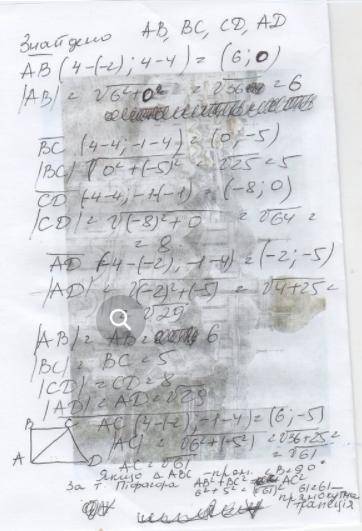 Знайдемо AB, BC, CD, AD
AB (4-(-2); 4-4) = (6; 0)
|AB| = √6²+0² = √36 = 6
BC (4-4; -1-4) = (0; -5)
|BC| √0²+(-5)² √25 = 5
CD (-4-4; -1-(-1) = (-8; 0)
|CD| = √(-8)²+0 = √64 =
= 8
AD (-4-(-2), -1-4) = (-2; -5)
|AD| = √(-2)²+(-5) = √4+25 =
√29
|AB| = AB = 6
|BC| = BC = 5
|CD| = CD = 8
|AD| = AD = √29
B C AC (4-(-2), -1-4) = (6; -5)
|AC| = √6²+(-5²) = √36+25 =
A D = √61
AC = √61
Якщо Δ ABC - прям. ∠B = 90°
За т. Піфагора AB²+BC² = AC²
6²+5² = (√61)² 61=61-
прямокутна
трапеція